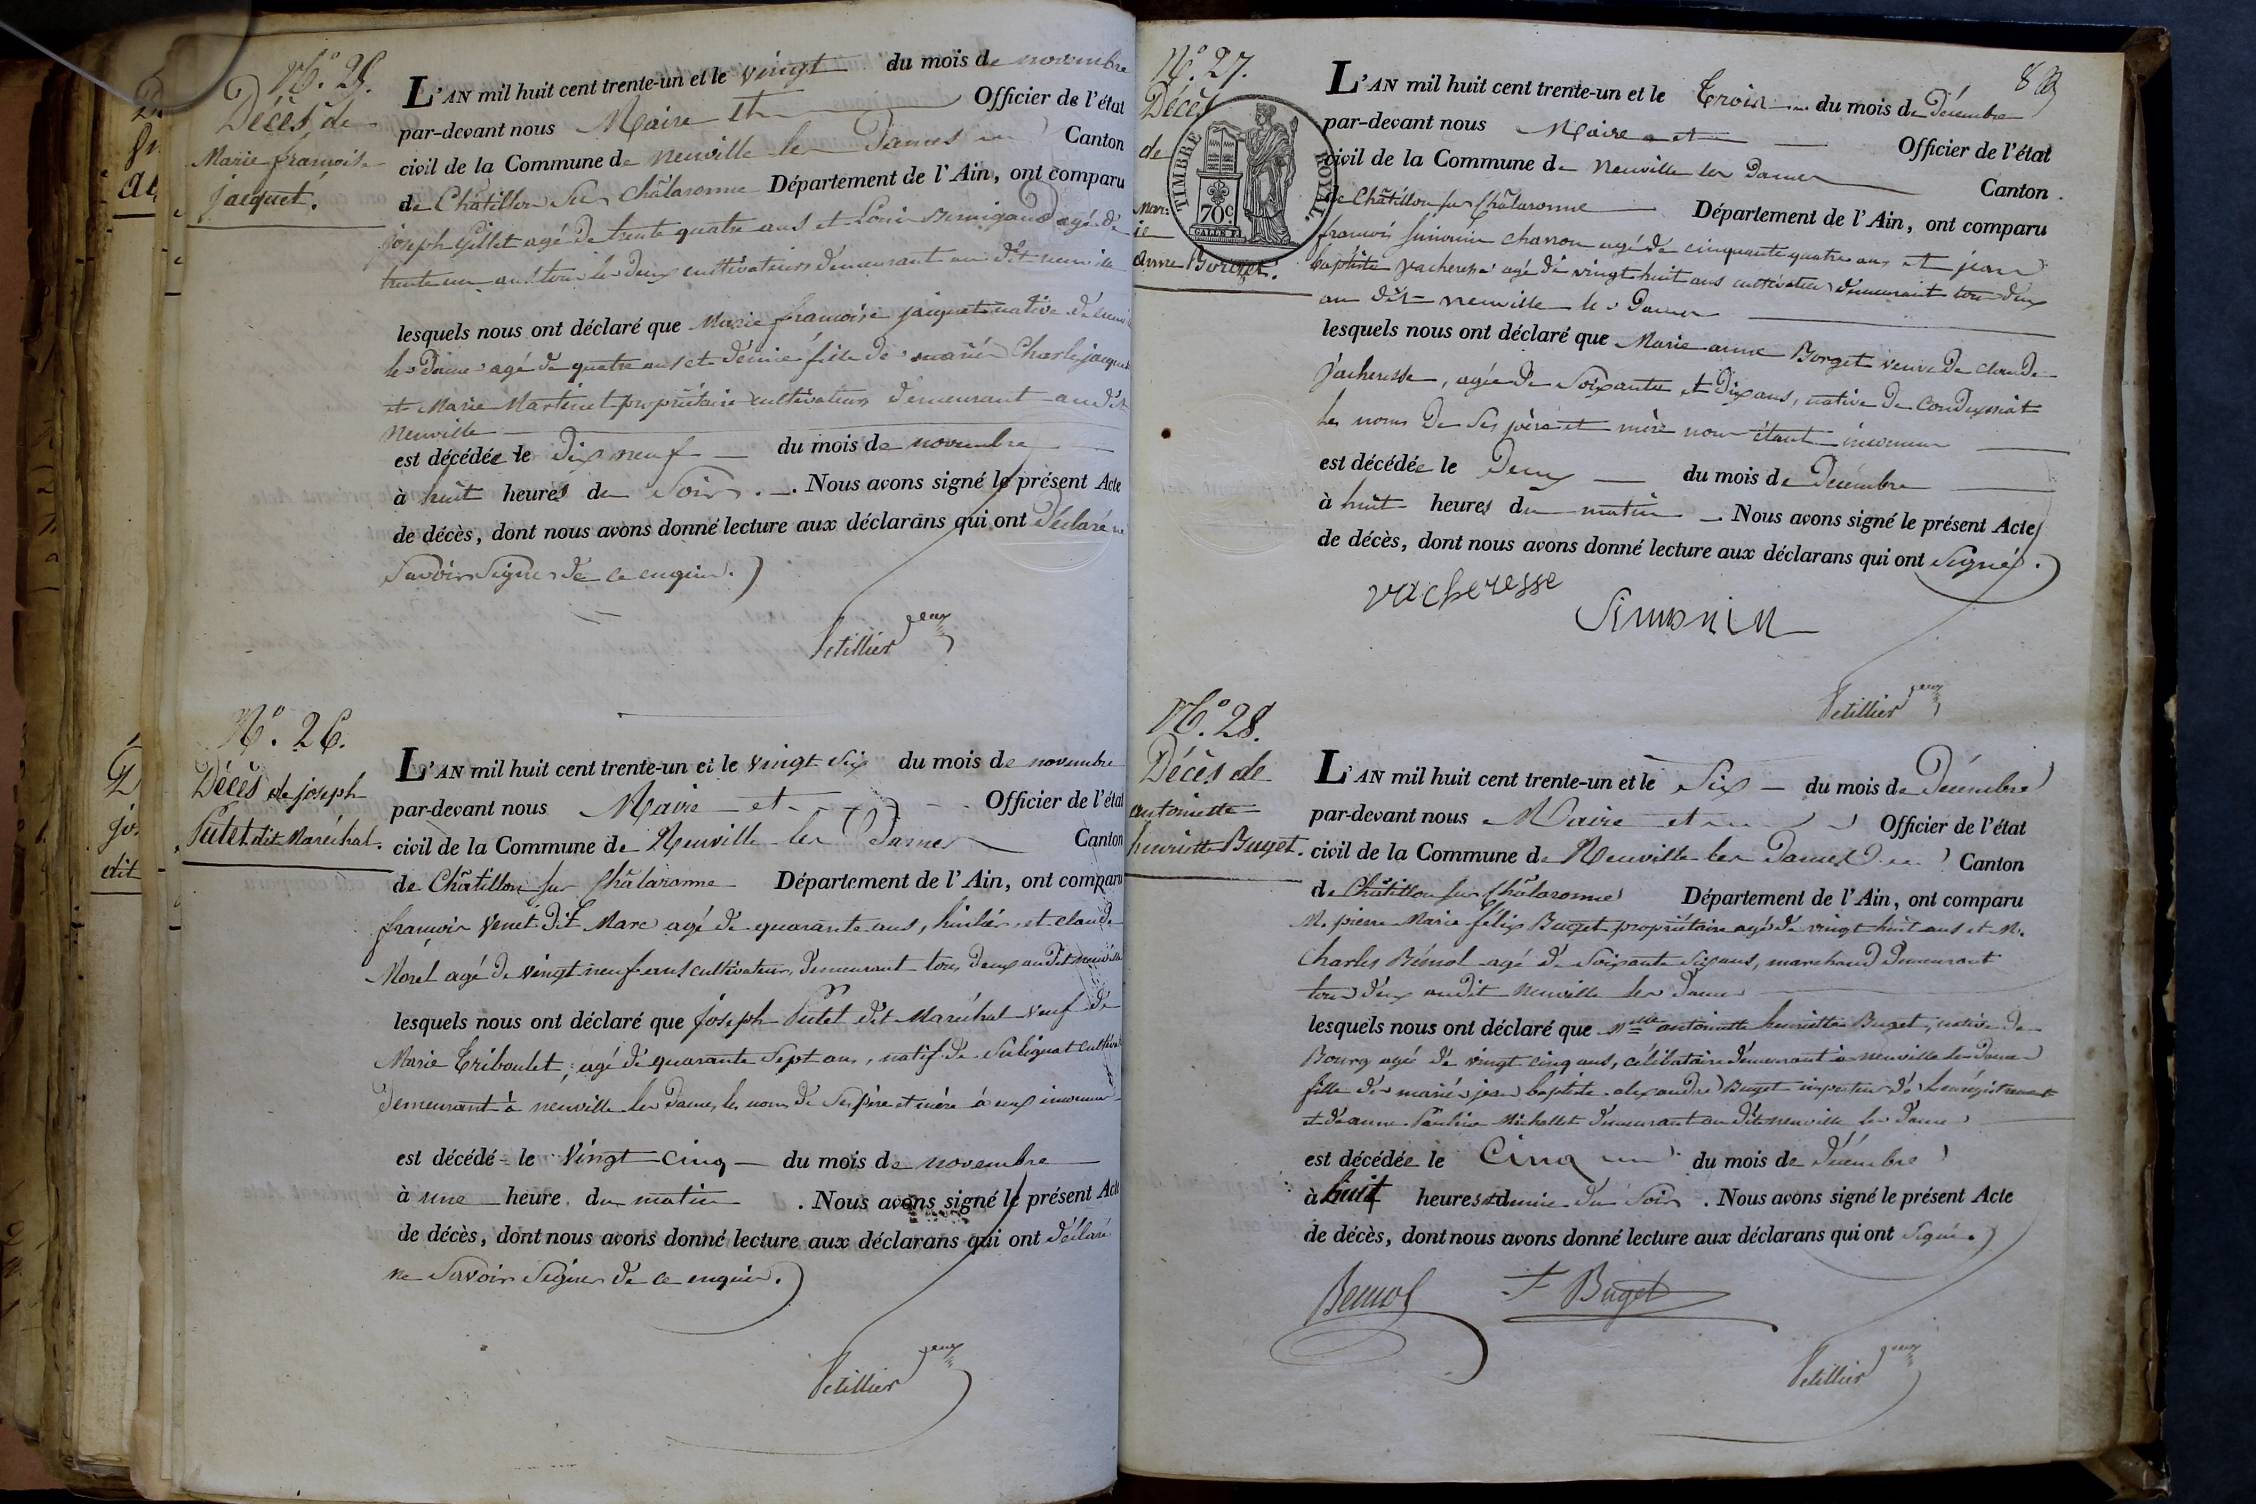 N.° 25.
Décès de
Marie françoise
jacquet.
L'AN mil huit cent trente-un et le vingt du mois de novembre
par-devant nous Maire et Officier de l'état
civil de la Commune de neuville les Dames Canton
de Châtillon sur Châlaronne Département de l'Ain, ont comparu
joseph Gillet agé de trente quatre ans et agé de
trente un ans tous les deux cultivateurs demeurant au dit neuville
lesquels nous ont déclaré que Marie françoise jacquet native de neuville
les Dames agé de quatre ans et demie fille de mariés Charle jacquet
et Marie Martinet propriétaire cultivateurs demeurant audit
Neuville
est décédée le dix neuf du mois de novembre
à huit heures du Soir. Nous avons signé le présent Acte
de décès, dont nous avons donné lecture aux déclarans qui ont déclaré ne
Savoir Signer de ce enquis.
Petillier
N.° 26.
Décès de joseph
Putet dit Maréchal.
L'AN mil huit cent trente-un et le vingt Six du mois de novembre
par-devant nous Maire et Officier de l'état
civil de la Commune de Neuville les Dames Canton
de Châtillon sur Châlaronne Département de l'Ain, ont comparu
françois Venet dit Marc agé de quarante ans, huilier, et claude
Morel agé de vingt neuf ans cultivateurs, demeurant tous deux audit neuville
lesquels nous ont déclaré que joseph Putet dit Maréchal veuf de
Marie Triboulet, agé de quarante Sept ans, natif de Sulignat
demeurant à neuville les Dames, les noms de Ses père et mère à eux inconnus
est décédé le vingt cinq du mois de novembre
à une heure du matin. Nous avons signé le présent Acte
de décès, dont nous avons donné lecture aux déclarans qui ont déclaré
ne Savoir Signer de ce enquis.
Petillier
N.° 27.
Décès
de
Mar=
ie
anne Borget.
TIMBRE ROYAL.
70 c
L'AN mil huit cent trente-un et le Trois du mois de Décembre
par-devant nous Maire et Officier de l'état
civil de la Commune de Neuville les Dames Canton
de Châtillon sur Châlaronne Département de l'Ain, ont comparu
françois Simonin agé de cinquante quatre ans et jean
baptiste Vacheresse agé de vingt huit ans cultivateur demeurant tous deux
au dit neuville les Dames
lesquels nous ont déclaré que Marie anne Borget veuve de claude
Vacheresse, agée de Soixante et Dix ans, native de Condeyssiat
les noms de Ses père et mère nous étant inconnus
est décédée le Deux du mois de Décembre
à huit heures du matin. Nous avons signé le présent Acte
de décès, dont nous avons donné lecture aux déclarans qui ont Signés.
vacheresse
Simonin
Petillier
N.° 28.
Décès de
antoinette
henriette Buget.
L'AN mil huit cent trente-un et le Six du mois de Décembre
par-devant nous Maire et Officier de l'état
civil de la Commune de Neuville les Dames Canton
de Châtillon sur Châlaronne Département de l'Ain, ont comparu
M. pierre Marie félix Buget propriétaire agé de vingt huit ans et M.
Charles Bémol agé de Soixante Six ans, marchand demeurant
tous deux audit Neuville les Dames
lesquels nous ont déclaré que Mlle antoinette henriette Buget, native de
Bourg agée de vingt cinq ans, célibataire demeurant à neuville les Dames
fille de mariés jean baptiste alexandre Buget inspecteur de L'enrégistrement
et de anne Pauline Michallet demeurant au dit neuville les Dames
est décédée le Cinq du mois de Décembre
à huit heures et demie du Soir. Nous avons signé le présent Acte
de décès, dont nous avons donné lecture aux déclarans qui ont Signé.
Bemol
F Buget
Petillier